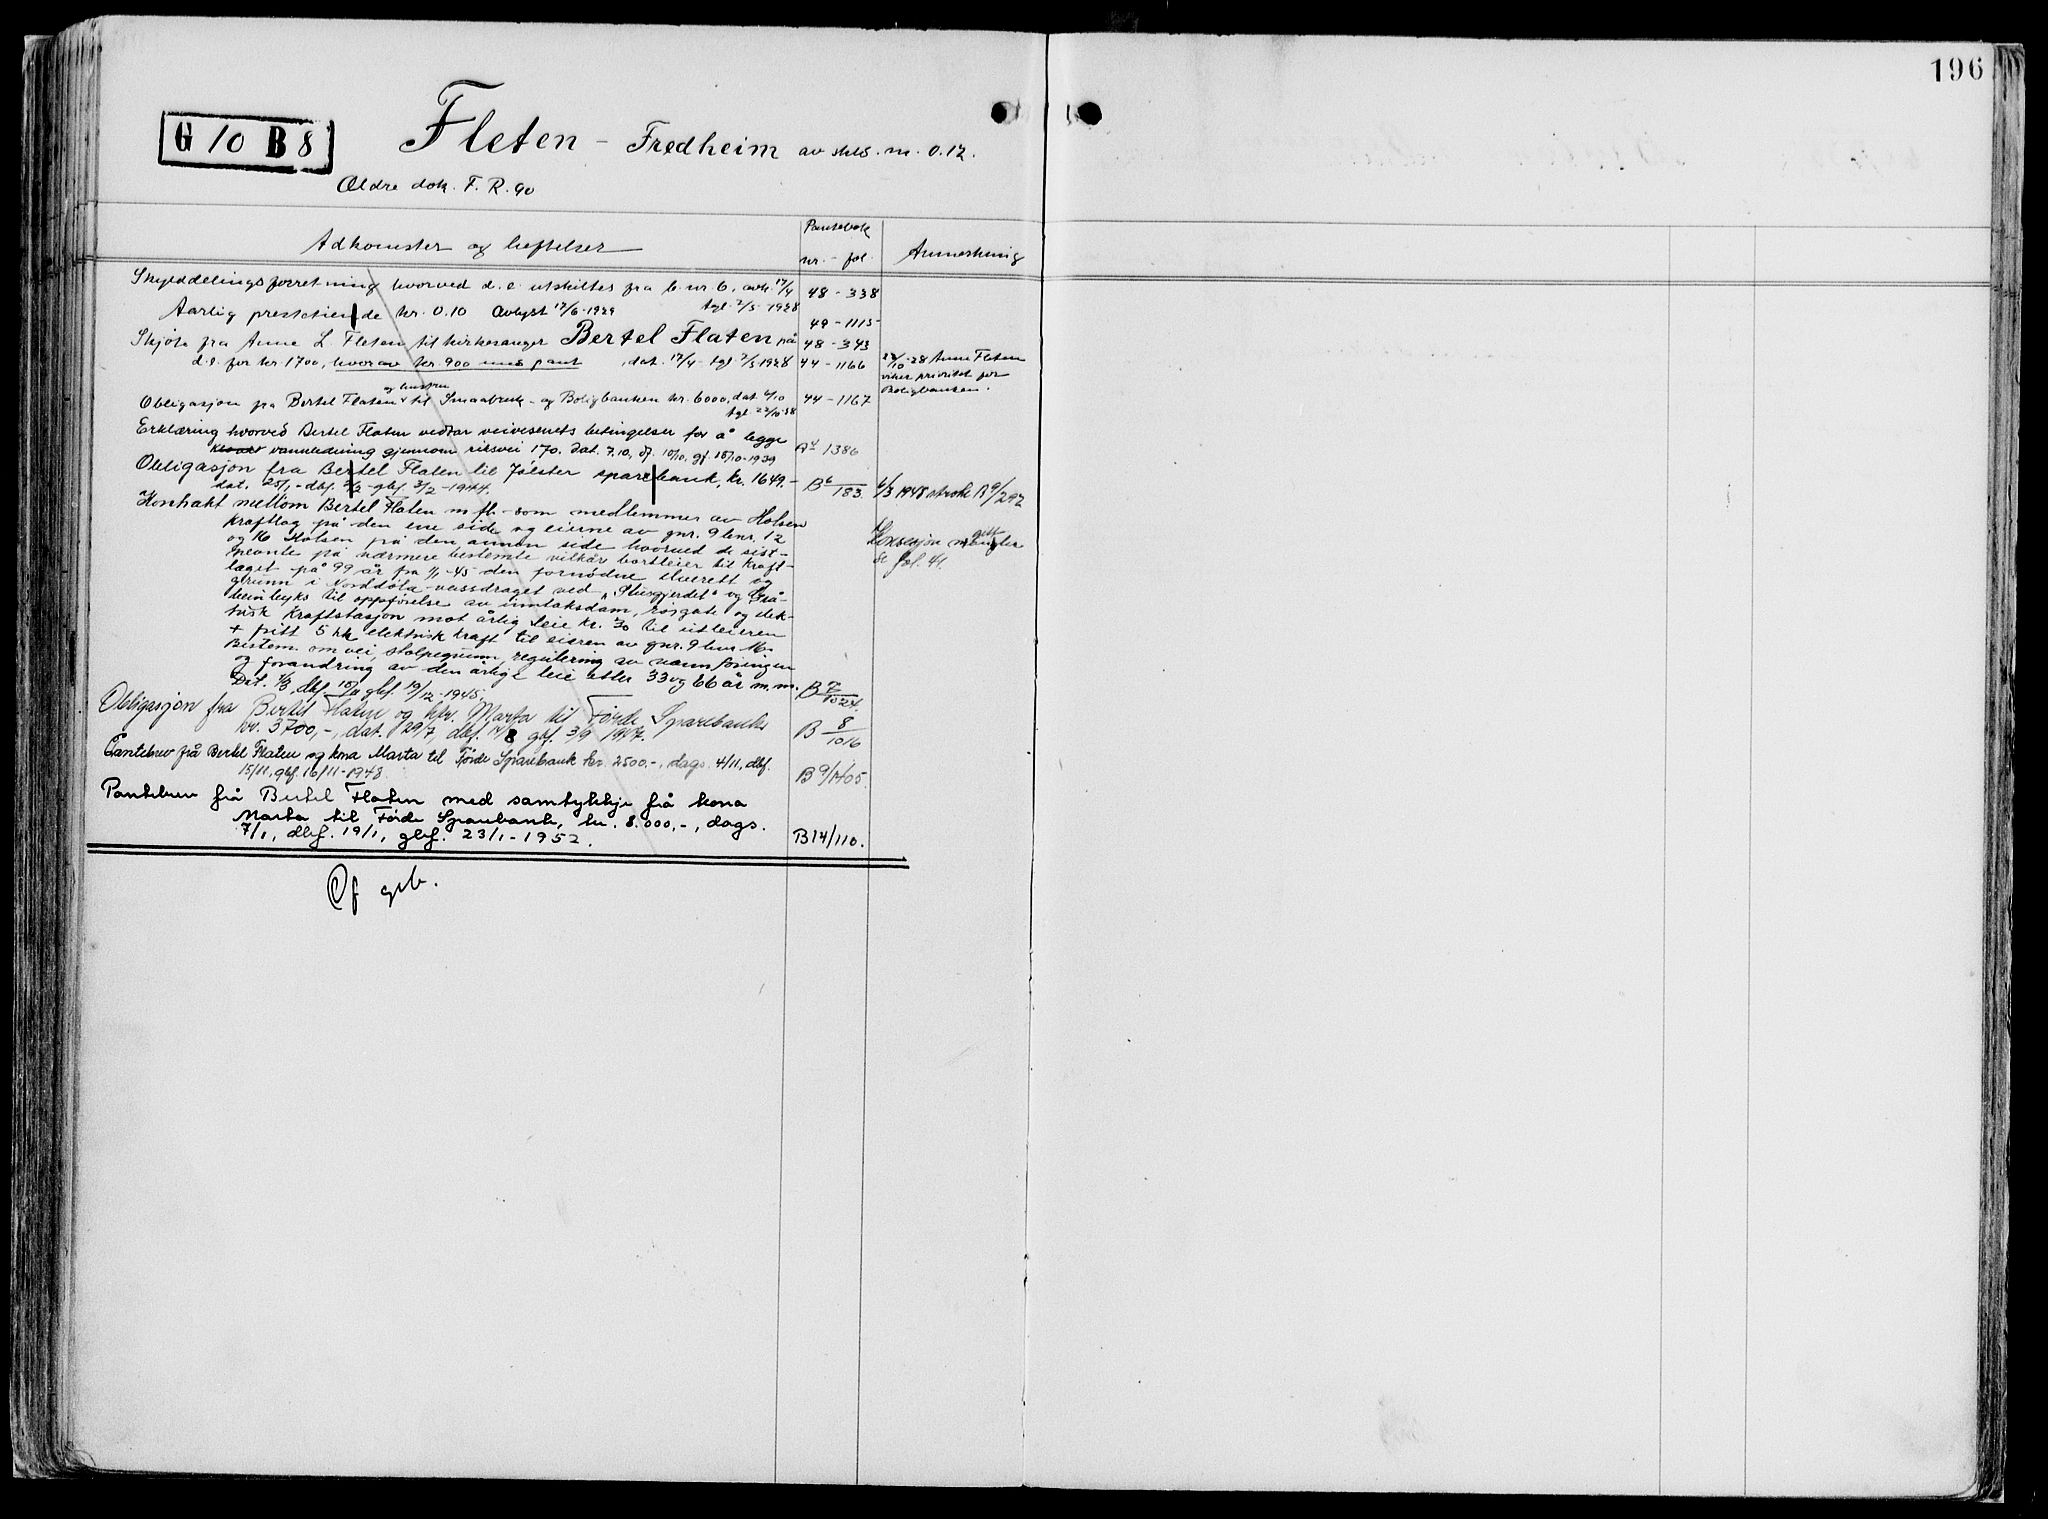 196
G 10 B 8
Fleten - Fredheim av skld. m. 0.12.
Ældre dok. F. R. 90
Adkomster og heftelser
Pantebok
nr. - fol.
Anmerkning
Skylddelingsforretning hvorved d. e. utskiltes fra b. nr. 6, avh. 17/4
tgl. 2/5 - 1928
48 - 338
Aarlig prestetiende kr. 0.10 Avlyst 17/6 - 1929
49 - 1115
Skjöte fra Anne L. Fleten til kirkesanger Bertel Flaten på
48 - 343
d. e. for kr. 1700, hvorav kr. 900 mot pant, dat. 17/4 - tgl. 2/5 1928
44 - 1166
22/10 - 28 Anne Fleten
viker prioritet for
Boligbanken.
Obligasjon fra Bertel Flaten og hustru til Smaabruk- og Boligbanken kr. 6000, dat. 6/10
tgl. 22/10 - 28
44 - 1167
Erklæring hvorved Bertel Flaten vedtar veivesenets betingelser for å legge
vannledning gjennom riksvei 170. Dat. 7.10, df. 10/10, gf. 15/10 - 1939
A4 1386
Obligasjon fra Bertel Flaten til Jölster sparebank, kr. 1649.-
dat. 25/1 - dbf. 2/2 - gbf. 3/2 - 1944.
B 6/183.
6/3 1948 stroke B 9/292
Kontrakt mellom Bertel Flaten m. fl. - som medlemmer av Holsen
kraftlag på den ene side og eierne av gnr. 9 bnr. 12
og 16 Holsen på den annen side hvorved de sist-
nevnte på nærmere bestemte vilkår bortleier til kraft-
laget på 99 år fra 1/1 - 45 den fornödne elverett og
grunn i Norddöla-vassdraget ved "Stusgjerdet" og Grå-
steinleyks til oppförelse av inntaksdam, rörgate og elek-
trisk kraftstasjon mot årlig leie kr. 30 til utleieren
+ fritt 5 kk elektrisk kraft til eieren av gnr. 9 bnr. 16.
Bestem. om vei, stolpegrunn, regulering av vannföringen
og forandring av den årlige leie etter 33 og 66 år m. m.
Dat. 7/3, dbf. 15/11 gbf. 19/12 - 1945.
B 7/1024.
Konsesjon mangler gitt
Se fol. 41.
Obligasjon fra Bertel Flaten og hfr. Marta til Förde Sparebank
kr. 3700,-, dat. 29/7, dbf. 14/8 gbf. 3/9 1947.
B 8/1016
Pantebrev frå Bertel Flaten og kona Marta til Förde Sparebank kr. 2500.-, dags. 4/11, dbf.
15/11, gbf. 16/11 - 1948
B 9/1405.
Pantebrev frå Bertel Flaten med samtykkje frå kona
Marta til Förde Sparebank, kr. 8.000,-, dags.
7/1, dbf. 19/1, gbf. 23/1 - 1952.
B 14/110.
Of grb.